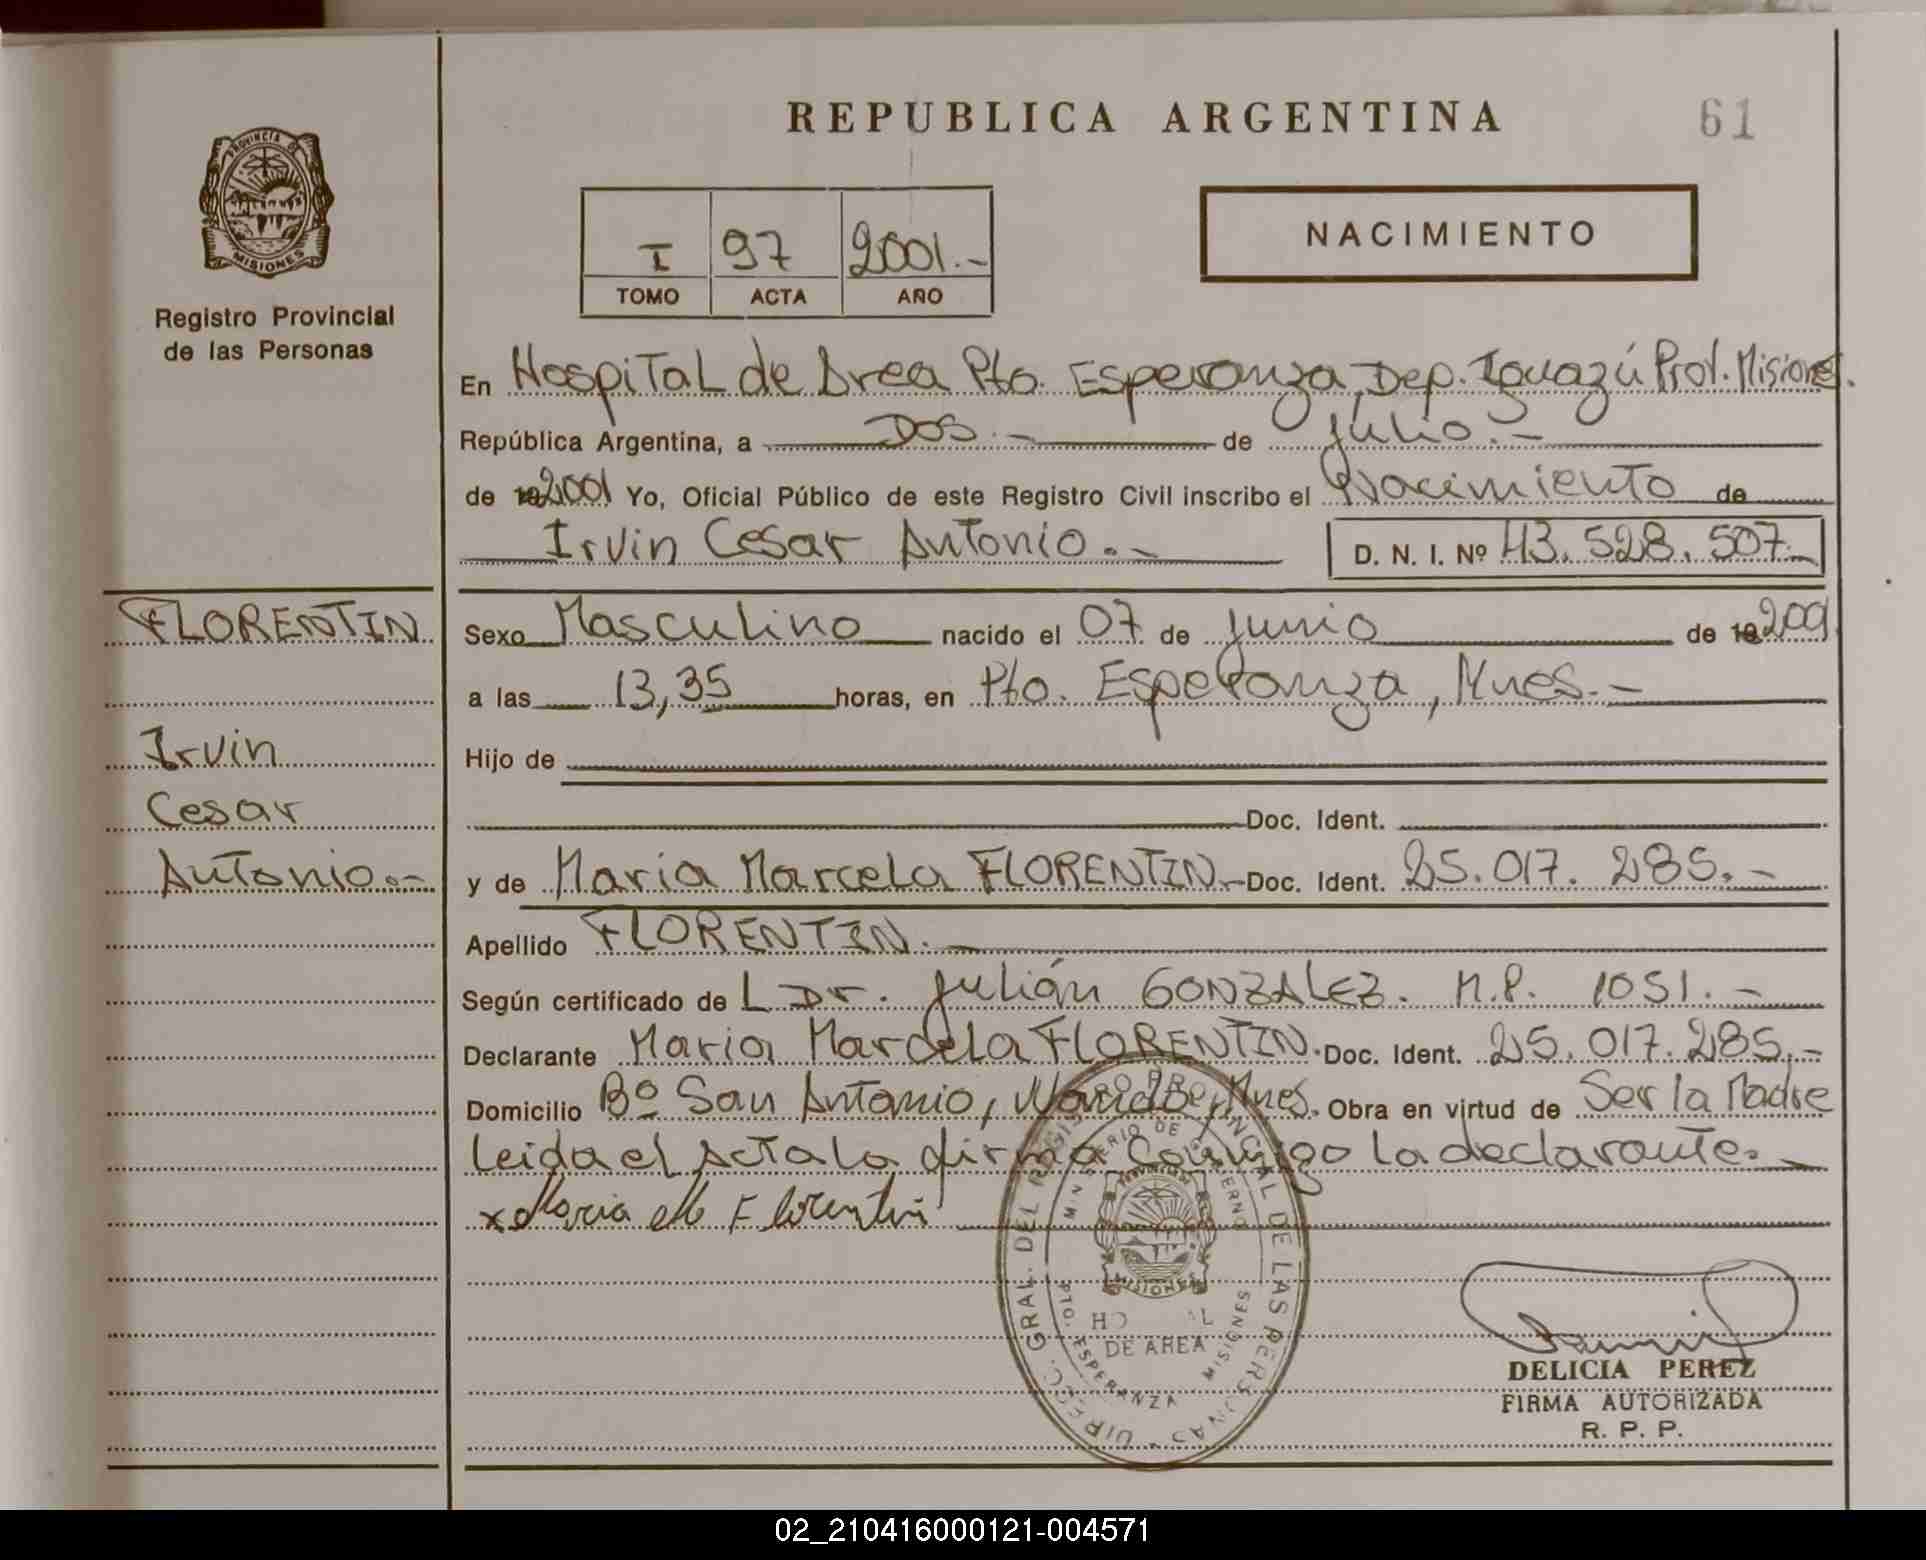 REPUBLICA ARGENTINA
61
PROVINCIA DE
MISIONES
Registro Provincial
de las Personas
I 97 2001.-
TOMO ACTA AÑO
NACIMIENTO
En Hospital de Area Pto. Esperanza, Dep. Iguazú Prov. Misiones.
República Argentina, a Dos.- de julio.-
de 192001 Yo, Oficial Público de este Registro Civil inscribo el Nacimiento de
Irvin Cesar Antonio.- D. N. I. Nº 43.528.507.-
FLORENTIN
Irvin
Cesar
Antonio.-
Sexo Masculino nacido el 07 de junio de 192001
a las 13,35 horas, en Pto. Esperanza, Mnes.-
Hijo de
Doc. Ident.
y de Maria Marcela FLORENTIN.- Doc. Ident. 25.017.285.-
Apellido FLORENTIN.-
Según certificado de L Dr. Julián GONZALEZ. M.P. 1051.-
Declarante Maria Marcela FLORENTIN. Doc. Ident. 25.017.285.-
Domicilio Bº San Antonio, Wanda, Mnes. Obra en virtud de Ser la Madre
Leida el Acta la firma Conmigo la declarante.-
x Maria M Florentin
DIRECC. GRAL. DEL REGISTRO PROVINCIAL DE LAS PERSONAS
MINISTERIO DE GOBIERNO
MISIONES
DE AREA
PTO. ESPERANZA MISIONES
DELICIA PEREZ
FIRMA AUTORIZADA
R. P. P.
02_210416000121-004571